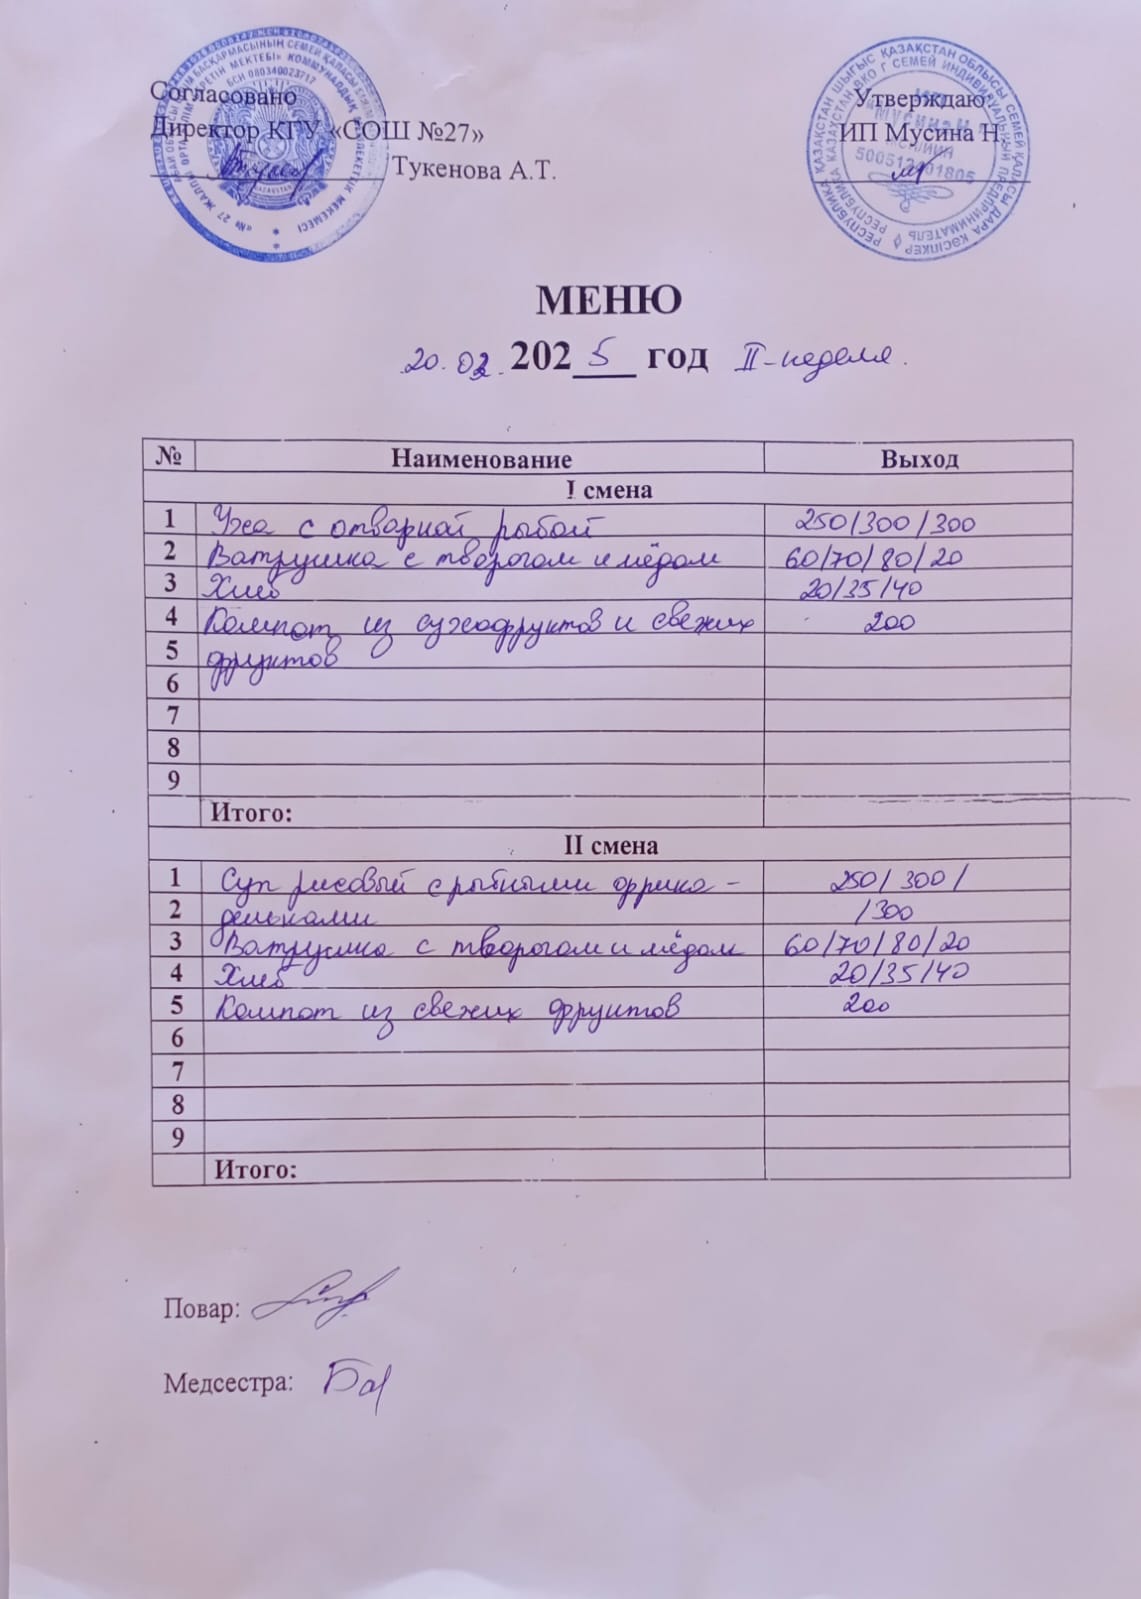 Согласовано
Директор КГУ «СОШ №27»
Тукенова А.Т.
Утверждаю
ИП Мусина Н.
БСН 080340023717
ҚАЗАҚСТАН ШЫҒЫС ҚАЗАҚСТАН ОБЛЫСЫ СЕМЕЙ ҚАЛАСЫ ДАРА КӘСІПКЕР
ВКО Г СЕМЕЙ ИНДИВИДУАЛЬНЫЙ ПРЕДПРИНИМАТЕЛЬ
МЕНЮ
20.02. 2025 год II-неделя.
№ Наименование Выход
I смена
1 Уха с отварной рыбой 250/300/300
2 Ватрушка с творогом и мёдом 60/70/80/20
3 Хлеб 20/35/40
4 Компот из сухофруктов и свежих 200
5 фруктов
6
7
8
9
Итого:
II смена
1 Суп рисовый с рыбными фрика-  250/300/
2 дельками /300
3 Ватрушка с творогом и мёдом 60/70/80/20
4 Хлеб 20/35/40
5 Компот из свежих фруктов 200
6
7
8
9
Итого:
Повар:
Медсестра: